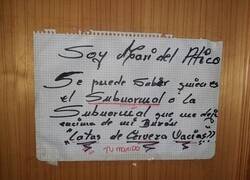 Soy Mari del Atico
Se puede saber quien es
el Subnormal o la
Subnormal que me deja
encima de mi Buzón
"Latas de Cerveza Vacias"
TU MARIDO